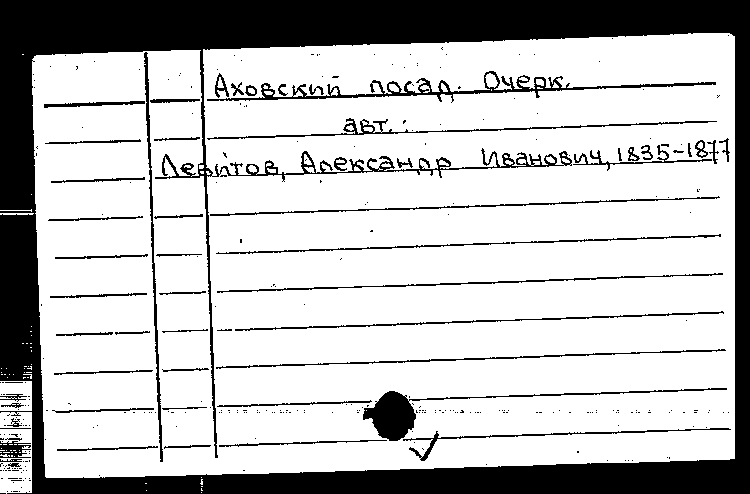 Аховский посад. Очерк.
авт.:
Левитов, Александр Иванович, 1835-1877